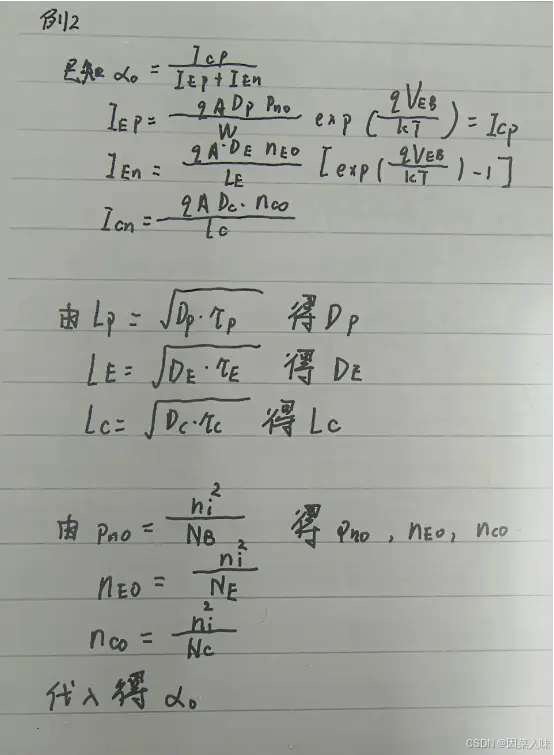 例2
已知 α₀ = Icp / (IEp + IEn)
IEp = (qADp pno / W) exp(qVEB / kT) = Icp
IEn = (qA·DE nEO / LE) [exp(qVEB / kT) - 1]
Icn = qADc·nco / Lc
由 Lp = √(Dp·τp) 得 Dp
LE = √(DE·τE) 得 DE
Lc = √(Dc·τc) 得 Lc
由 pno = ni² / NB 得 pno, nEO, nco
nEO = ni² / NE
nco = ni² / Nc
代入得 α₀
CSDN @因菜入味